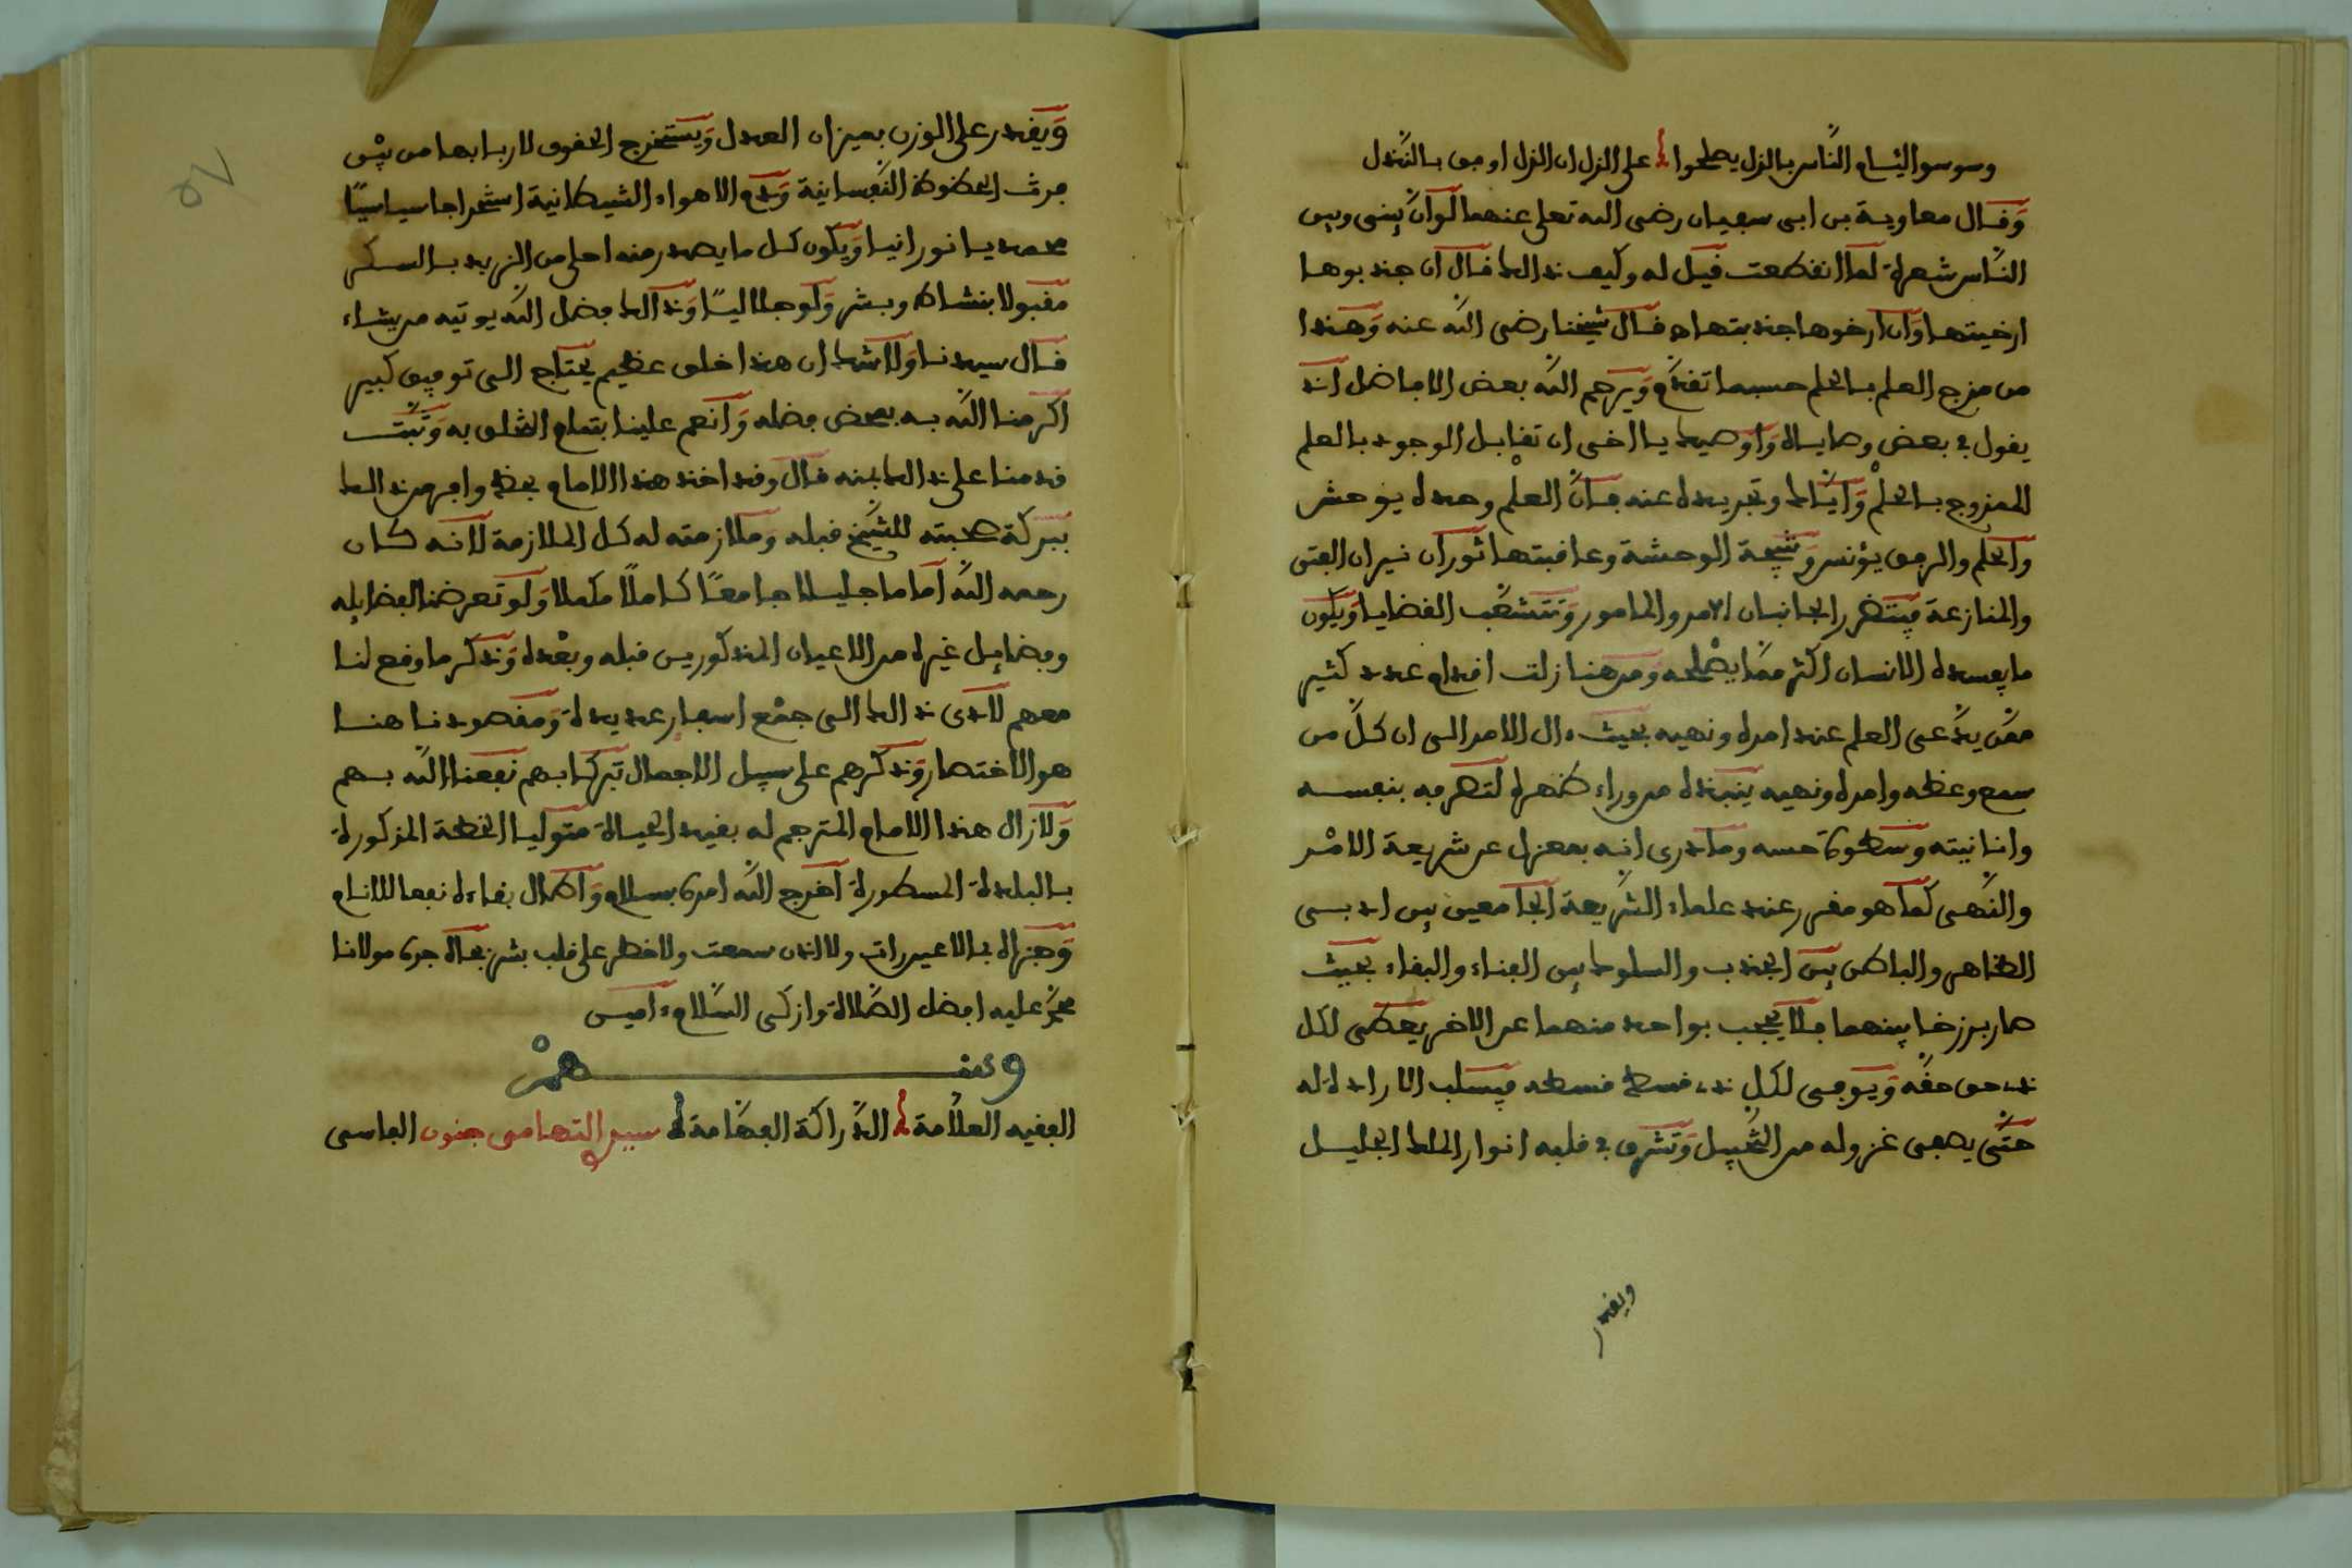 وسوسوا ليام الناس بالزل يصلحوا على الزل ان الزل اوفق بالنذل
وقال معاوية بن ابى سفيان رضى الله تعلى عنهما لو ان بينى وبين
الناس شعرة لما انقطعت قيل له وكيف ذالك قال ان جذبوها
ارخيتها وان ارخوها جذبتها ه قال شيخنا رضى الله عنه وهذا
من مزج العلم بالحلم حسبما تقدم ويرحم الله بعض الافاضل اذ
يقول في بعض وصاياه واوصيك يا اخى ان تقابل الوجود بالعلم
الممزوج بالحلم واياك وتجريده عنه فان العلم وحده يوحش
والحلم والرفق يؤنس ونتيجة الوحشة وعاقبتها ثوران نيران الفتن
والمنازعة فيتضرر الجانبان الامر والمامور وتتشعب القضايا ويكون
ما يفسده الانسان اكثر مما يصلحه ومن هنا زلت اقدام عدد كثير
ممن يدعى العلم عند امره ونهيه بحيث ءال الامر الى ان كل من
سمع وعظه وامره ونهيه ينبذه من وراء ظهره لتصرفه بنفسه
وانانيته وسطوة حسه وما درى انه بمعزل عن شريعة الامر
والنهى كما هو مقرر عند علماء الشريعة الجامعين بين ادبى
الظاهر والباطن بين الجذب والسلوك بين الفناء والبقاء بحيث
صار برزخا بينهما فلا يحجب بواحد منهما عن الاخر يعطى لكل
ذى حق حقه ويوفى لكل ذى قسط قسطه فيسلب الارادة له
حتى يصفى غزوله من التخبيل وتشرق في قلبه انوار الملك الجليل
ويقدر
ويقدر على الوزن بميزان العدل ويستخرج الحقوق لاربابها من بين
فرث الحظوظ النفسانية ودم الاهواء الشيطانية استخراجا سياسيا
محمديا نورانيا ويكون كل ما يصدر منه احلى من الزبد بالسكر
مقبولا بنشاط وبشر ولو جلاليا وذالك فضل الله يوتيه من يشاء
قال سيدنا ولا شك ان هذا خلق عظيم يحتاج الى توفيق كبير
اكرمنا الله به بمحض فضله وانعم علينا بتمام التخلق به وثبت
قدمنا على ذالك بمنه قال وقد اخذ هذا الامام بحظ وافر من ذالك
ببركة صحبته للشيخ قبله وملازمته له كل الملازمة لانه كان
رحمه الله اماما جليلا جامعا كاملا مكملا ولو تعرضنا لفضايله
وفضايل غيره من الاعيان المذكورين قبله وبعده وذكر ما وقع لنا
معهم لادى ذالك الى جمع اسفار عديدة ومقصودنا هنا
هو الاختصار وذكرهم على سبيل الاجمال تبركا بهم نفعنا الله بهم
ولازال هذا الامام المترجم له بقيد الحياة متوليا الخطة المذكورة
بالبلدة المسطورة اخرج الله امره بسلام واطال بقاءه نفعا للانام
وجزاه بما لا عين رات ولا اذن سمعت ولا خطر على قلب بشر بجاه جده مولانا
محمد عليه افضل الصلاة وازكى السلام ءامين
ومنهم
الفقيه العلامة الدراكة الفهامة سيدي التهامى جنون الفاسى